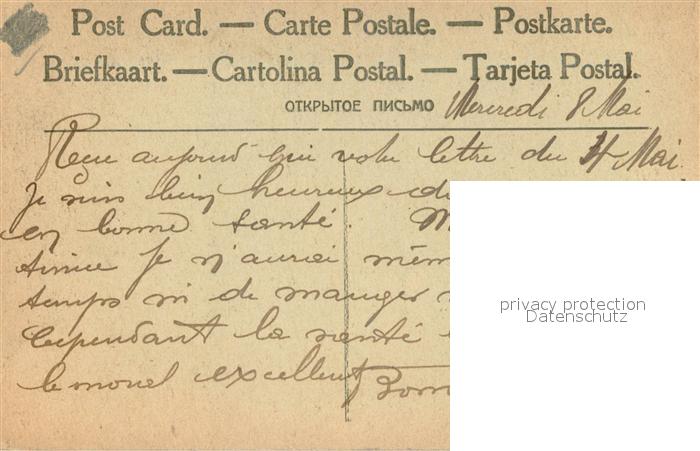 Post Card. — Carte Postale. — Postkarte.
Briefkaart. — Cartolina Postal. — Tarjeta Postal.
ОТКРЫТОЕ ПИСЬМО Mercredi 8 Mai
Reçu aujourd'hui votre lettre du 4 Mai.
Je suis bien heureux
en bonne santé.
Je n'aurai
temps ni de manger
Cependant la santé
le moral excellent
privacy protection
Datenschutz